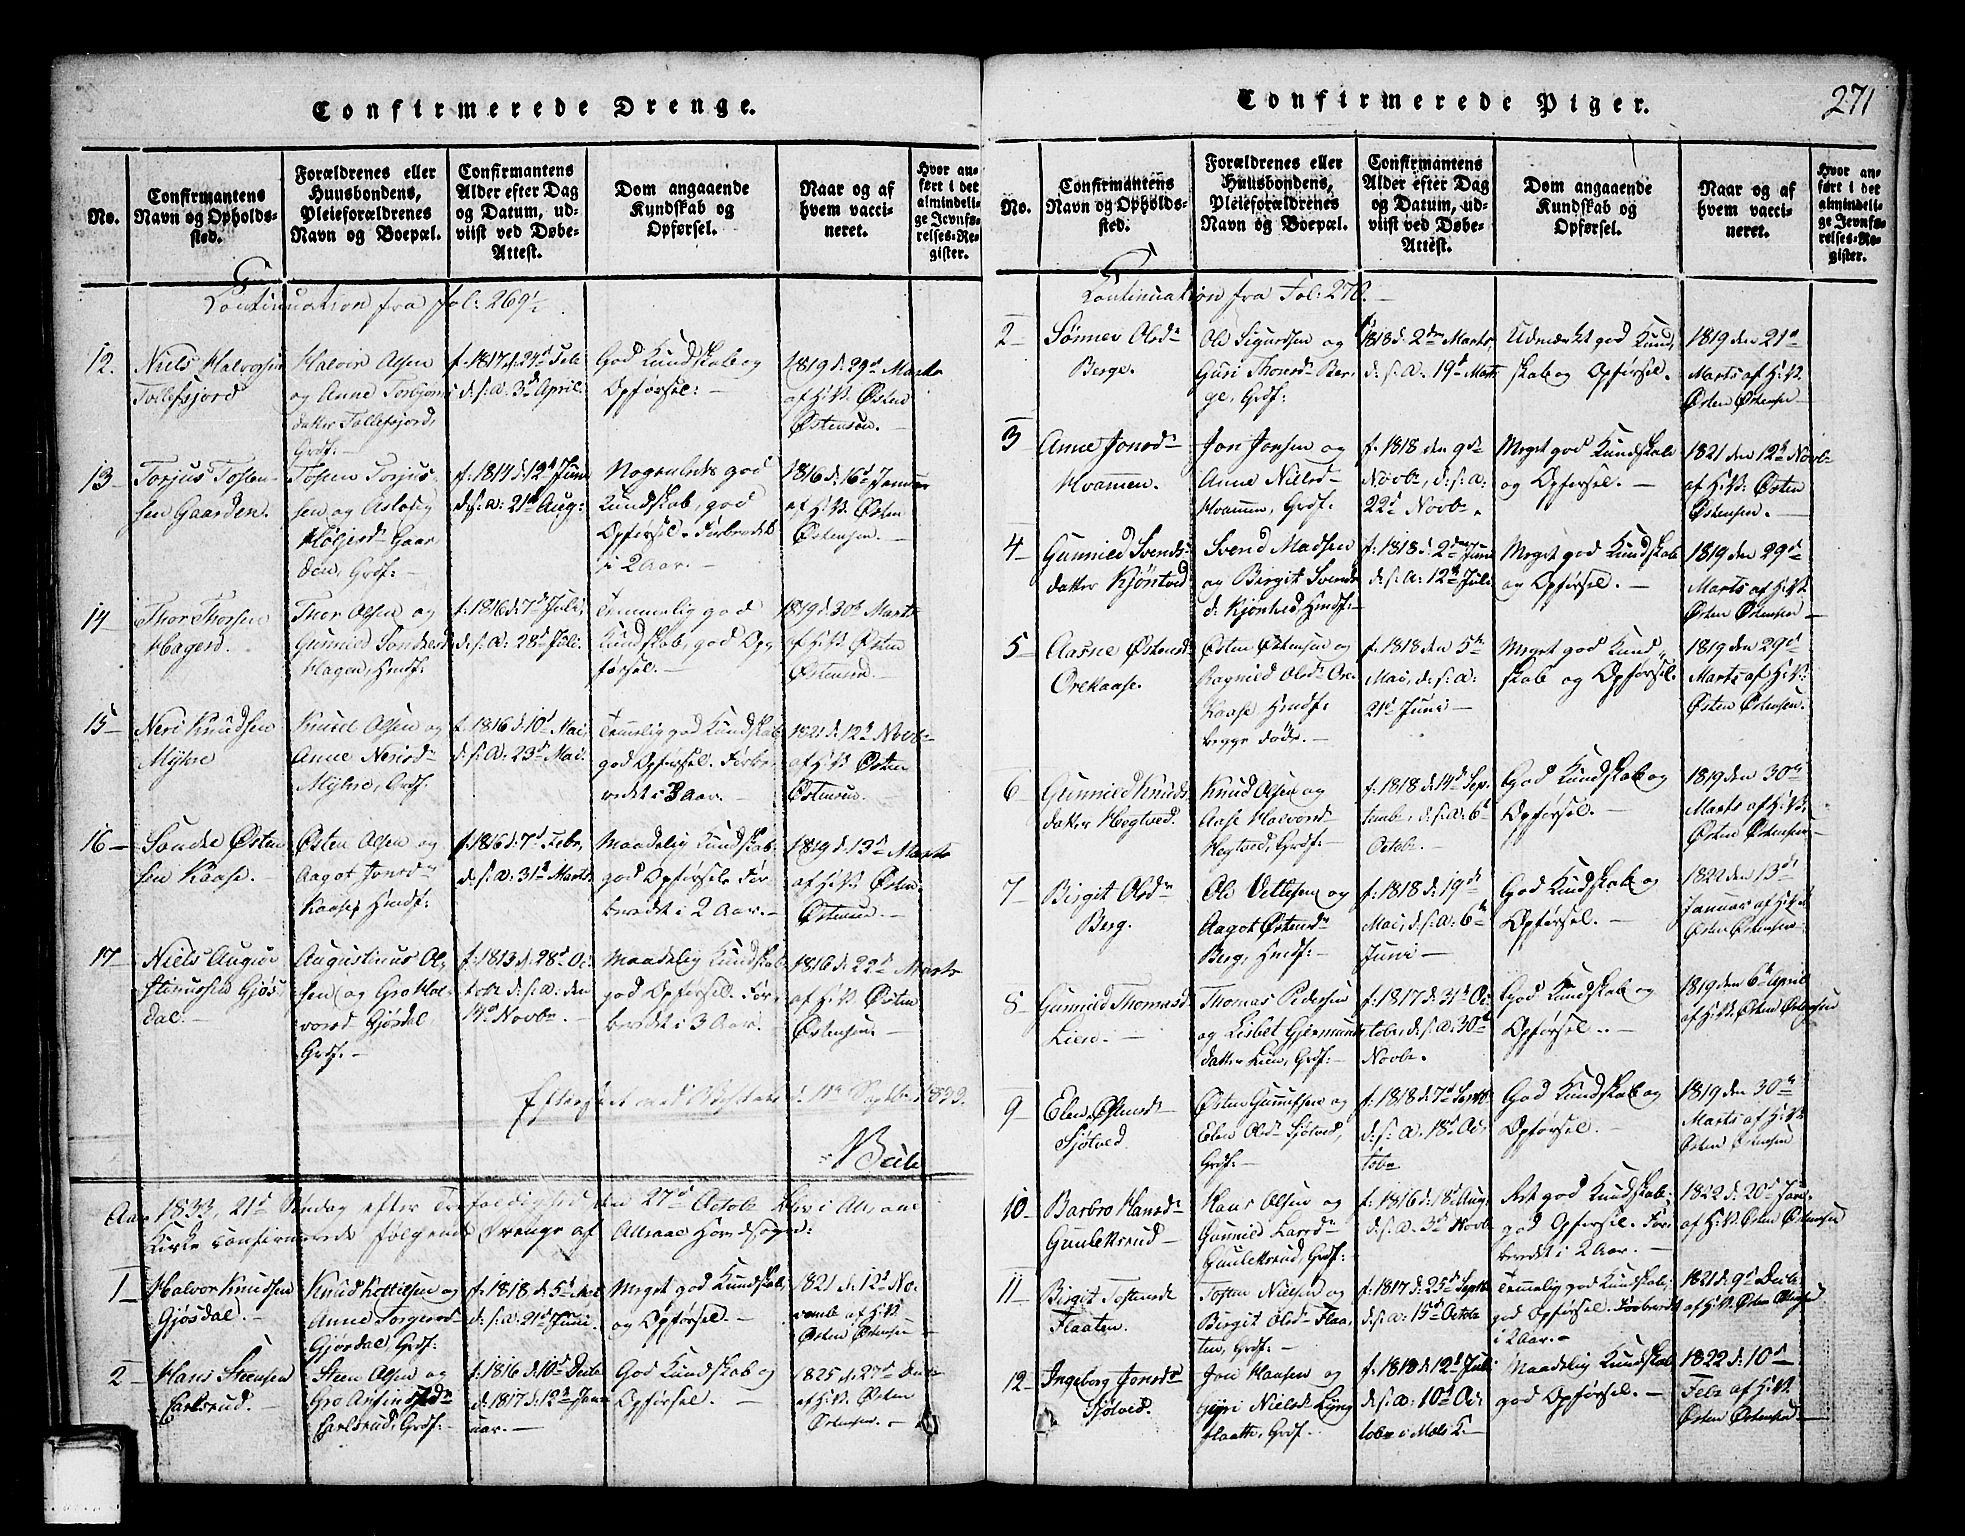 Confirmerede Drenge.
No.
Confirmantens
Navn og Opholds-
sted.
Forældrenes eller
Huusbondens,
Pleieforældrenes
Navn og Boepæl.
Confirmantens
Alder efter Dag
og Datum, ud-
viist ved Døbe-
Attest.
Dom angaaende
Kundskab og
Opførsel.
Naar og af
hvem vacci-
neret.
Hvor an-
ført i det
almindeli-
ge Jevnfø-
relses-Re-
gister.
Continuation fra fol: 269
12.
Niels Halvorsen
Tollefsjord
Halvor Olsen
og Anne Torbjørns
datter Tollefsjord,
Grdf.
f. 1817 d. 24d Feb
d. s. a. 3d April.
God Kundskab og
Opførsel. —
1819 d. 29d Marts
af H: K: Østen
Østensen. —
13 —
Torjus Tosten-
sen Gaarden.
Tosten Torjus-
sen og Aslaug
Gaar-
den, Grdf: —
f. 1814 d. 12d Juni
d. s. a. 21d Aug:
Nogenledes god
Kundskab, god
Opførsel. Forberedt
i 2 Aar. —
1816 d. 16d Januar
af H: K: Østen
Østensen. —
14 —
Thor Thorsen
Hagen.
Thor Olsen og
Gunnild Sondresd
Hagen, Hmdf:
f. 1816 d. 7d Juli,
d. s. a. 28d Juli.
Temmelig god
Kundskab, god Op-
førsel. —
1819 d. 30d Marts
af H: K: Østen
Østensen —
15 —
Neri Knudsen
Myhre
Knud Olsen og
Anne Nerisdr
Myhre, Grdf.
f. 1816 d. 10d Mai,
d. s. a. 23d Mai.
Temmelig god Kundskab,
god Opførsel. Forbe-
redt i 3 Aar. —
1821 d. 12d Novb
af H: K: Østen
Østensen. —
16 —
Sondre Østen
sen Kaase.
Østen Olsen og
Aagot Jonsdr
Kaase, Hmdf:
f. 1816 d. 7d Febr,
d. s. a. 31d Marts
Maadelig Kundskab,
god Opførsel. For-
beredt i 2 Aar. —
1819 d. 13d Marts
af H: K: Østen
Østensen. —
17 —
Niels Augu-
stinussen Gjøs-
dal. —
Augustinus Ol-
sen og Gro Hal-
vorsd Gjøsdal
Grdf. —
f. 1813 d. 28d Oc-
tob d. s. a. den
14d Novb. —
Maadelig Kundskab,
god Opførsel. For-
beredt i 3 Aar. —
1816 d. 22d Marts
af H: K: Østen
Østensen. —
1833.
Aar 1833, 21d Søndag efter Trefoldighed den 27d Octob blev i Atraae
Kirke confirmerede følgende Drenge af Atraae Hovedsogn:
1
Halvor Knudsen
Gjøsdal.
Knud Kettilsen og
Anne Torgersd
Gjøsdal, Grdf.
f. 1818 d. 5d
d. s. a. 21d Juni.
Meget god Kundskab,
og Opførsel. —
1821 d. 12d No-
vemb af H: K:
Østen Østensen —
2
Hans Steensen
Carlsrud.
Steen Olsen og
Gro
Carlsrud, Grdf.
f. 1816 d. 10d Decb
d. 1817 d. 12d Janu-
uar. —
God Kundskab og
Opførsel. —
1825 d. 27d
af H: K: Østen
Østensen. —
Confirmerede Piger.
271
No.
Confirmantens
Navn og Opholds-
sted.
Forældrenes eller
Huusbondens,
Pleieforældrenes
Navn og Boepæl.
Confirmantens
Alder efter Dag
og Datum, ud-
viist ved Døbe-
Attest.
Dom angaaende
Kundskab og
Opførsel.
Naar og af
hvem vacci-
neret.
Hvor an-
ført i det
almindeli-
ge Jevnfø-
relses-Re-
gister.
Continuation fra Fol: 270. —
2
Sønnev Olsdr
Berge.
Ole Sigurdsen og
Guri Thorsdr Ber-
ge, Grdf:
f. 1818 d. 2den Marts,
d. s. a. 19d Marts
Udmærket god Kund-
skab og Opførsel.
1819 den 21d
Marts af H: K:
Østen Østensen —
3
Anne Jonsdr
Hvammen.
Jon Jonsen og
Anne Nielsd
Hvammen, Grdf.
f. 1818 den 9de
Novb, d. s. a.
22d Novb.
Meget god Kundskab
og Opførsel. —
1821 den 12d Novb
af H: K: Østen
Østensen. —
4
Gunnild Svends-
datter Kjøntved
Svend Madsen
og Birgit Svends
d. Kjøntved Hmdf: —
f. 1818 d. 2den Juni
d. s. a. 12d Juli
Meget god Kundskab
og Opførsel. —
1819 den 29d
Marts af H: K:
Østen Østensen —
5
Aasne Østensd
Orekaase.
Østen Østensen og
Ragnild Olsdr Ore-
kaase Hmdf.
begge døde. —
f. 1818 den 5te
Mai, d. s. a.
21d Juni —
Meget god Kund-
skab og Opførsel.
1819 den 29d
Marts af H: K:
Østen Østensen.
6
Gunnild Knuds
datter Hegtved.
Knud Olsen og
Aase Halvorsd
Hegtved, Grdf. —
f. 1818 d. 14d Sep-
temb, d. s. a. 6d
Octob.
God Kundskab og
Opførsel. —
1819 den 30d
Marts af H: K:
Østen Østensen —
7
Birgit Olsdr
Berg.
Ole Vettesen og
Aagot Østensdr
Berg, Hmdf: —
f. 1818 d. 19de
Mai, d. s. a. 6d
Juni —
God Kundskab og
Opførsel. —
1822 den 13d
Januar af H: K:
Østen Østensen —
8
Gunnild Thomasd
Lien. —
Thomas Pedersen
og Lisbet Gjermunds
datter Lien, Grdf: —
f. 1817 d. 31d Oc-
tobr, d. s. a. 30d
Novb.
God Kundskab og
Opførsel. —
1819 den 6d April
af H: K: Østen Østensen
9
Elen Østensd
Sjøtved
Østen Gunnufsen og
Elen Olsd Sjøtved,
Grdf: —
f. 1818 d. 7d Septb
d. s. a. 18d Oc-
tobr
God Kundskab og
Opførsel. —
1819 den 30d
Marts af H: K:
Østen Østensen
10 —
Barbro Hansdr
Gauleksrud
Hans Olsen og
Gunnild Larsdr
Gauleksrud, Grdf:
f. 1816 d. 18d Aug,
d. s. a. 3d Novb
Ret god Kundskab,
god Opførsel. For-
beredt i 2 Aar. —
1822 d. 20d Janu-
af H: K: Østen Østensen
11
Birgit Tostensdr
Flaaten.
Tosten Nielsen og
Birgit Olsdr Flaa-
ten, Grdf: —
f. 1817 d. 25d Septb
d. s. a. 15d Octob
Temmelig god Kundskab,
god Opførsel. Forberedt
i 2 Aar. —
1821 d. 9d Decb
af H: K: Østen Østensen
12 —
Ingeborg Jonsdr
Sjøtved.
Jon Hansen og
Nielsd
Grdf.
f. 1818 d. 12d Juli
d. s. a. 10d Oc-
tobr i Mæls K. —
Maadelig Kundskab
god Opførsel. —
1822 d. 10d
Feb af H: K:
Østen Østensen —